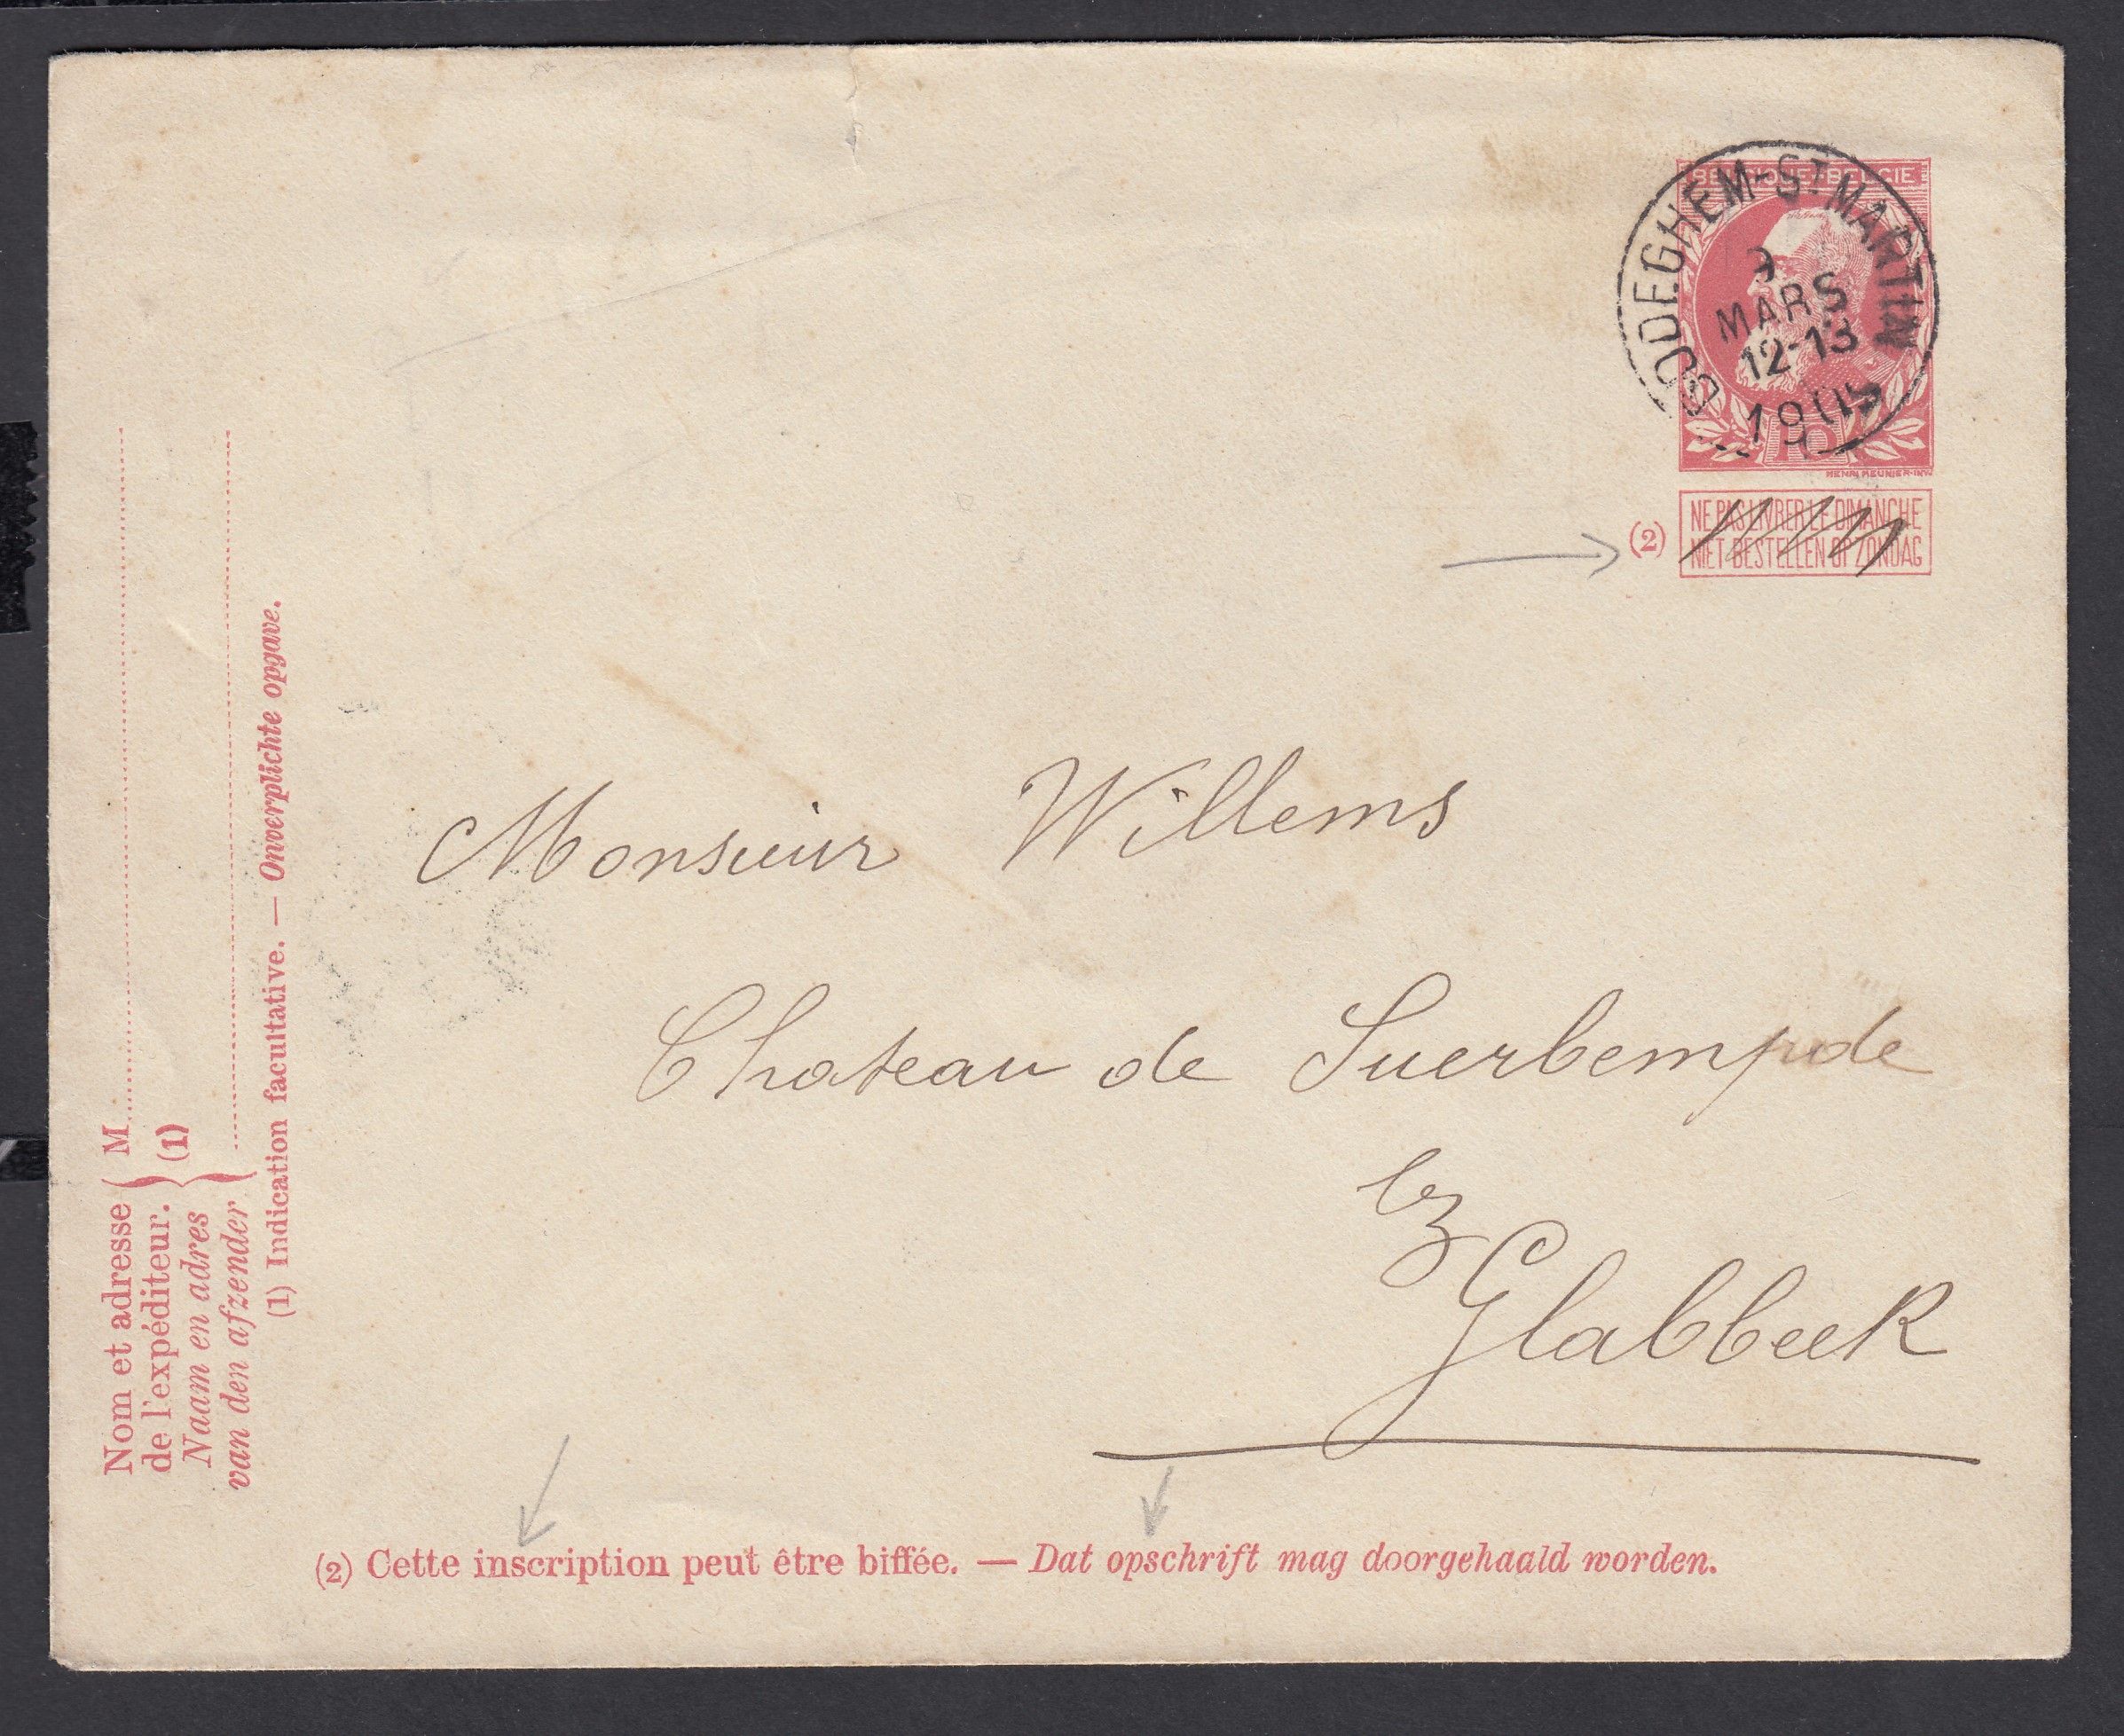 BELGIQUE-BELGIE
BODEGHEM-ST MARTIN
9
MARS
12-13
1909
10
HENRI MEUNIER-INV
(2)
NE PAS LIVRER LE DIMANCHE
NIET BESTELLEN OP ZONDAG
Nom et adresse
de l'expéditeur.
M
(1)
Naam en adres
van den afzender
(1) Indication facultative. — Onverplichte opgave.
Monsieur Willems
Chateau de Suerbempde
lez
Glabbeek
(2) Cette inscription peut être biffée. — Dat opschrift mag doorgehaald worden.